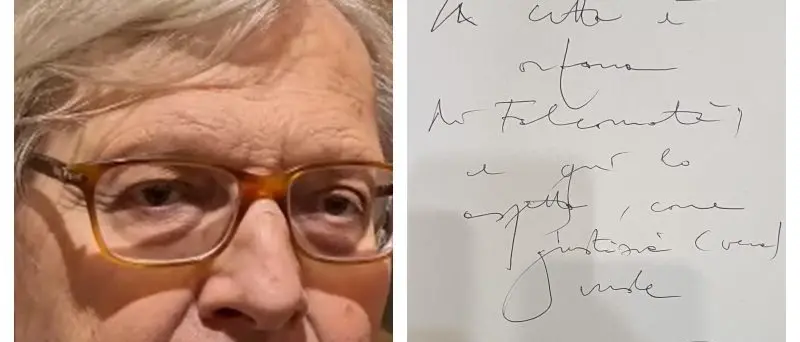 La città è
orfana
di Falcomatà,
e qui lo
aspetta, come
giustizia (vera)
vuole